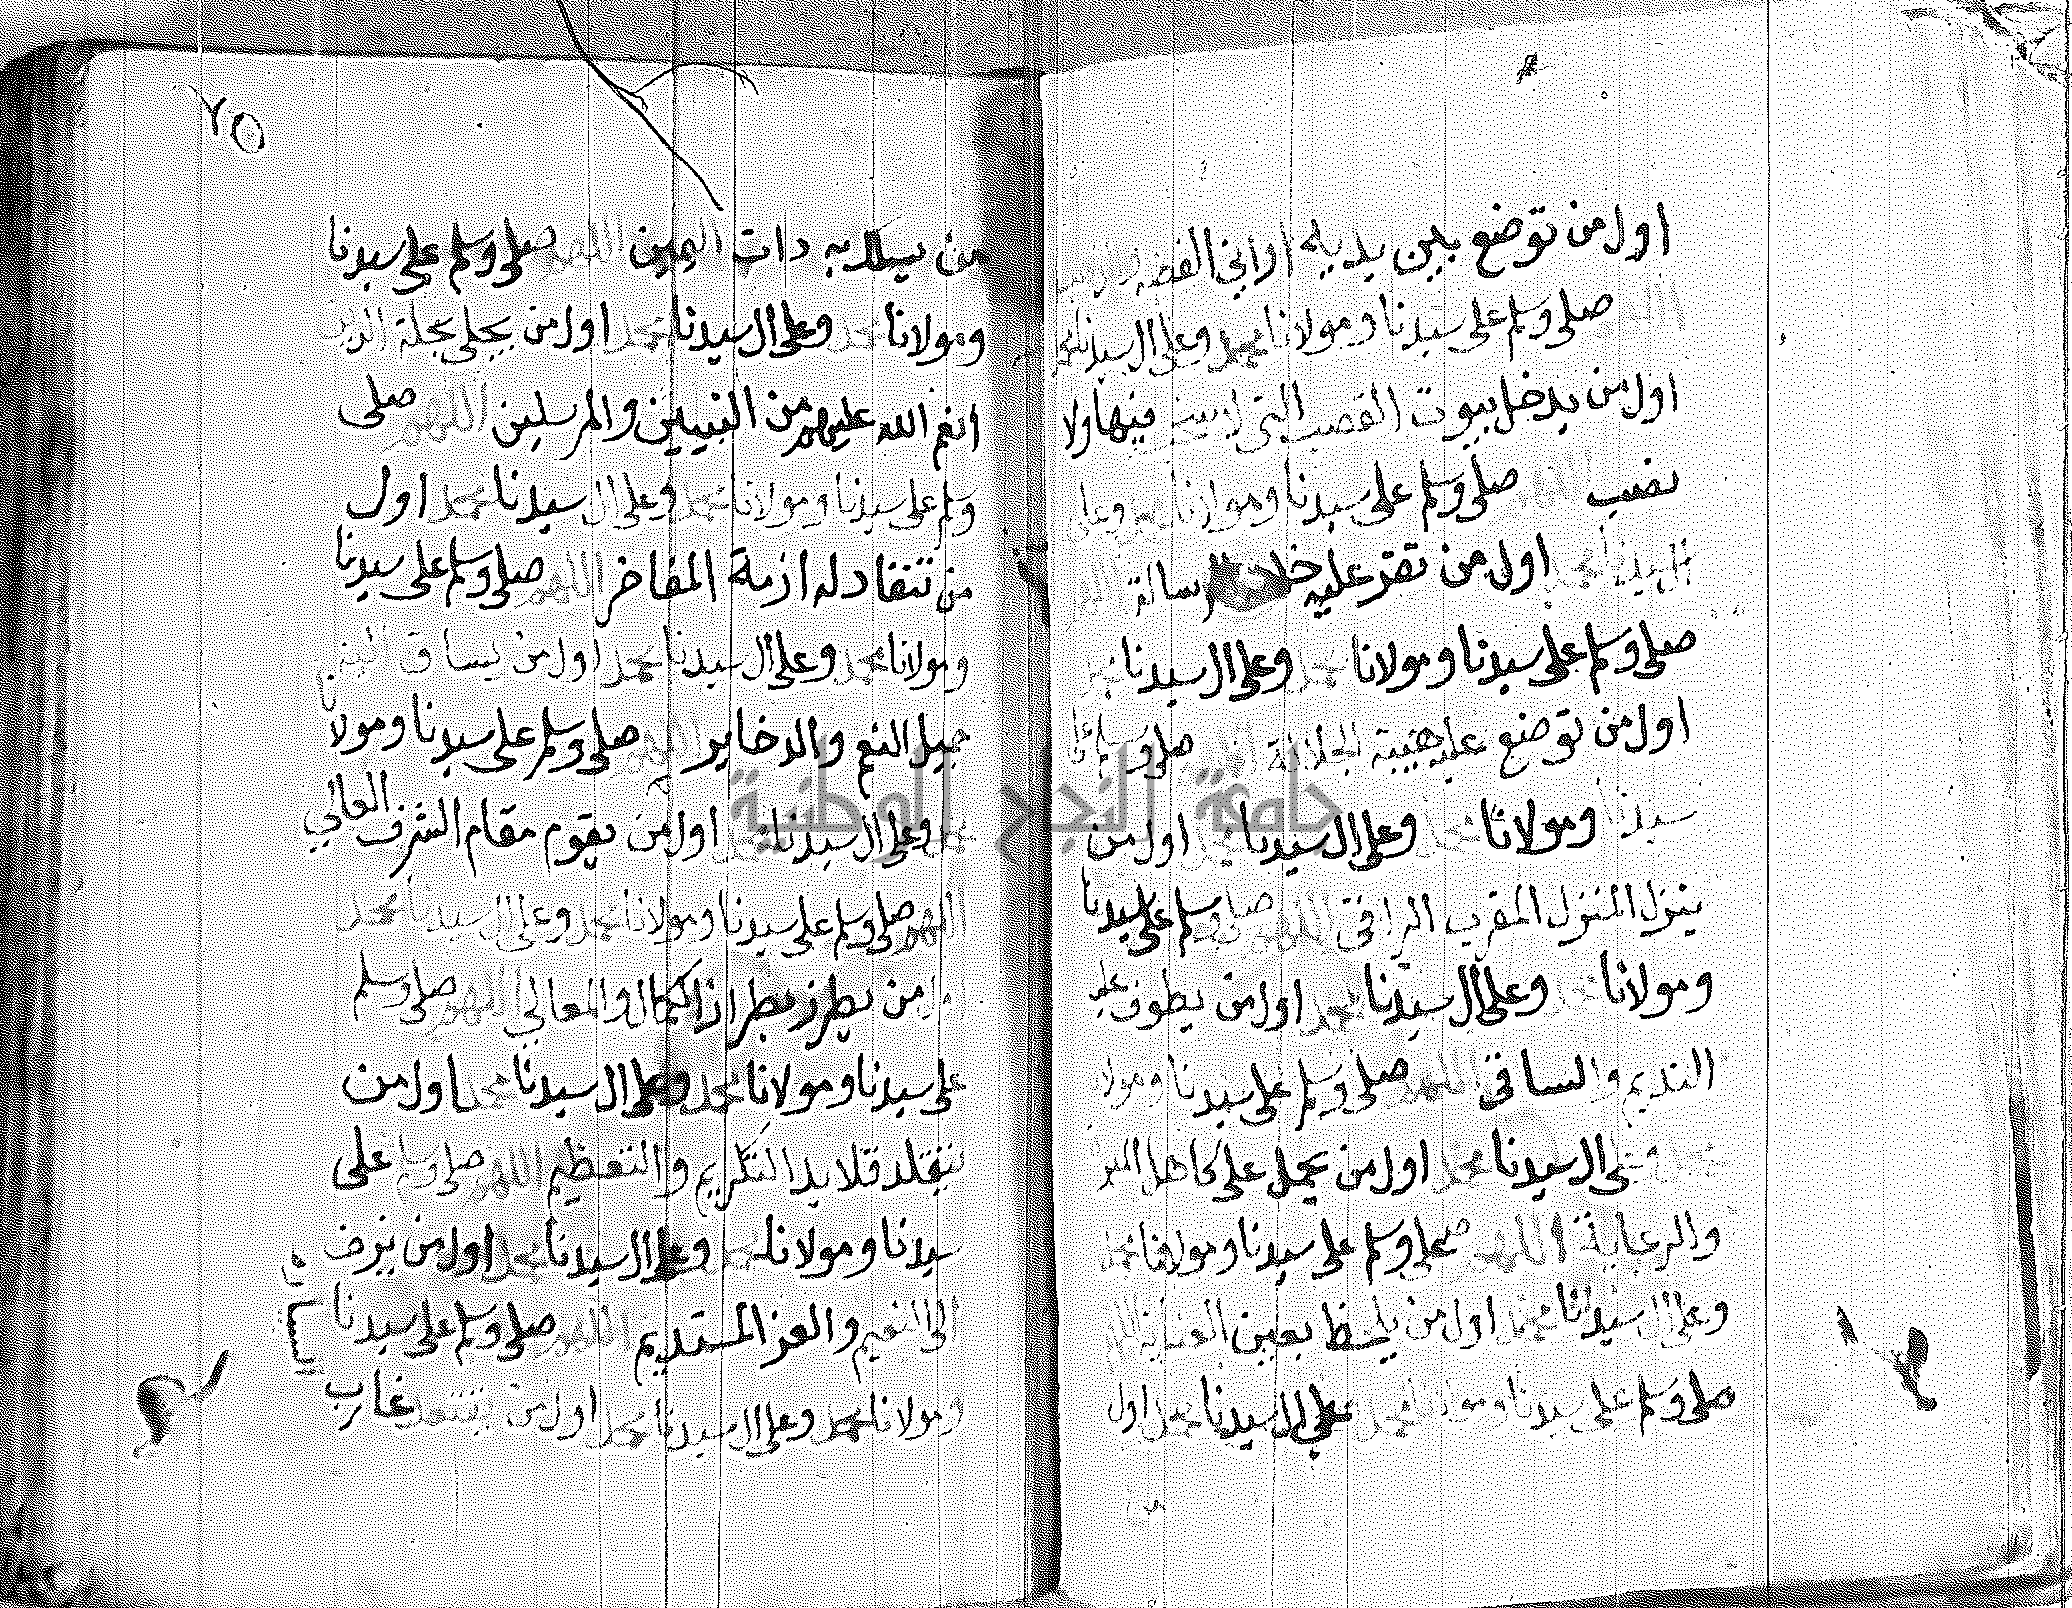 اول من توضع بين يديه اواني الفضة
صلى وسلم على سيدنا ومولانا محمد وعلى ال سيدنا محمد
اول من يدخل بيوت القصب التي فيها ولا
نصب صلى وسلم على سيدنا ومولانا محمد وعلى
ال سيدنا محمد اول من تقر عليه رسالة
صلى وسلم على سيدنا ومولانا محمد وعلى ال سيدنا محمد
اول من توضع عليه هيبة الجلالة صلى وسلم
سيدنا ومولانا محمد وعلى ال سيدنا محمد اول من
ينزل المنزل المقرب الراقي اللهم صلى وسلم على سيدنا
ومولانا محمد وعلى ال سيدنا محمد اول من يطوف عليه
النديم والساقي اللهم صلى وسلم على سيدنا ومولا
على ال سيدنا محمد اول من يحمل على كاهل
والرعاية اللهم صلى وسلم على سيدنا ومولانا محمد
وعلى ال سيدنا محمد اول من يلحظ بعين العناية
صلى وسلم على سيدنا ومولانا محمد على ال سيدنا محمد اول
٢٥
من يسلك به ذات اليمين اللهم صلى وسلم على سيدنا
ومولانا محمد وعلى ال سيدنا محمد اول من يحلى بحلة الذين
انعم الله عليهم من النبيين والمرسلين اللهم صلى
وسلم على سيدنا ومولانا محمد وعلى ال سيدنا محمد اول
من تنقاد له ازمة المفاخر اللهم صلى وسلم على سيدنا
ومولانا محمد وعلى ال سيدنا محمد اول من يساق اليه
جميل النعم والدخاير اللهم صلى وسلم على سيدنا ومولانا
محمد وعلى ال سيدنا محمد اول من يقوم مقام الشرف العالي
اللهم صلى وسلم على سيدنا ومولانا محمد وعلى ال سيدنا محمد
اول من يطرز بطراز الكمال والمعالي اللهم صلى وسلم
على سيدنا ومولانا محمد وعلى ال سيدنا محمد اول من
يتقلد قلايد التكريم والتعظيم اللهم صلى وسلم على
سيدنا ومولانا محمد وعلى ال سيدنا محمد اول من يزف
الى النعيم والعز المستديم اللهم صلى وسلم على سيدنا
ومولانا محمد وعلى ال سيدنا محمد اول من يقتعد غارب
جامعة النجاح الوطنية